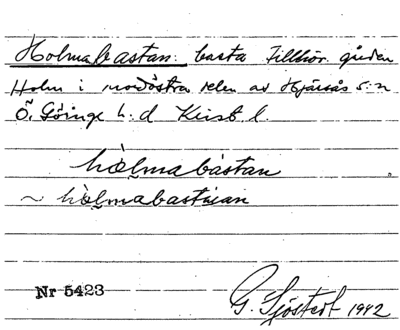 Holmabastan: basta Tillhör gården
Holm i nordöstra delen av Hjärsås s:n
Ö. Göinge h:d Krist l.
hòlmabástan
~ hòlmabastuan
Nr 5423
G. Sjöstedt 1942